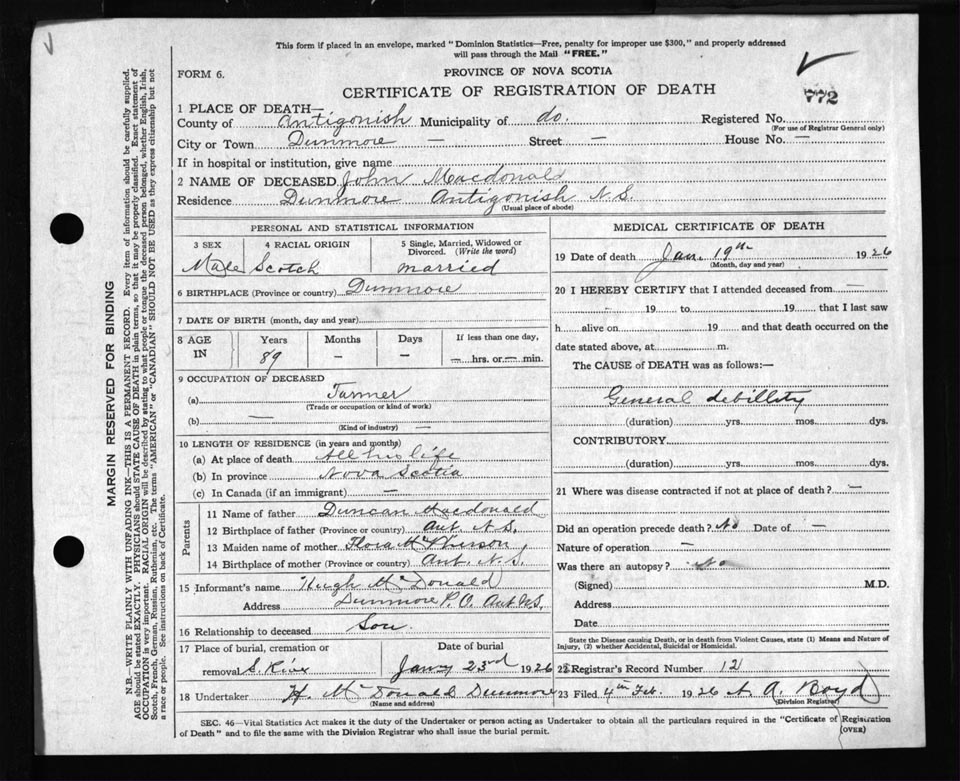 This form if placed in an envelope, marked "Dominion Statistics—Free, penalty for improper use $300," and properly addressed
will pass through the Mail "FREE."
FORM 6.
PROVINCE OF NOVA SCOTIA
772
CERTIFICATE OF REGISTRATION OF DEATH
1 PLACE OF DEATH—
County of Antigonish Municipality of do. Registered No.
(For use of Registrar General only)
City or Town Dunmore — Street — House No. —
If in hospital or institution, give name
2 NAME OF DECEASED John Macdonald
Residence Dunmore Antigonish N.S.
(Usual place of abode)
PERSONAL AND STATISTICAL INFORMATION
3 SEX 4 RACIAL ORIGIN 5 Single, Married, Widowed or
Divorced. (Write the word)
Male Scotch married
6 BIRTHPLACE (Province or country) Dunmore
7 DATE OF BIRTH (month, day and year)
8 AGE Years Months Days If less than one day,
IN 89 — — — hrs. or — min.
9 OCCUPATION OF DECEASED
(a) Farmer
(Trade or occupation or kind of work)
(b) —
(Kind of industry) —
10 LENGTH OF RESIDENCE (in years and months)
(a) At place of death All his life
(b) In province Nova Scotia
(c) In Canada (if an immigrant) —
Parents
11 Name of father Duncan Macdonald
12 Birthplace of father (Province or country) Ant. N.S.
13 Maiden name of mother Flora McPherson
14 Birthplace of mother (Province or country) Ant. N.S.
15 Informant's name Hugh McDonald
Address Dunmore P.O. Ant NS.
16 Relationship to deceased Son
17 Place of burial, cremation or Date of burial
removal S. River Jany 23rd 1926
18 Undertaker H. McDonald Dunmore
(Name and address)
MEDICAL CERTIFICATE OF DEATH
19 Date of death Jan. 19th 1926
(Month, day and year)
20 I HEREBY CERTIFY that I attended deceased from —
19 to 19 that I last saw
h alive on 19 and that death occurred on the
date stated above, at m.
The CAUSE of DEATH was as follows:—
General debillity
(duration) yrs. mos. dys.
CONTRIBUTORY
(duration) yrs. mos. dys.
21 Where was disease contracted if not at place of death? —
Did an operation precede death? No Date of —
Nature of operation —
Was there an autopsy? No
(Signed) M.D.
Address
Date
State the Disease causing Death, or in death from Violent Causes, state (1) Means and Nature of
Injury, (2) whether Accidental, Suicidal or Homicidal.
22 Registrar's Record Number 12
23 Filed 4th Feb. 1926 A. A. Boyd
(Division Registrar)
SEC. 46—Vital Statistics Act makes it the duty of the Undertaker or person acting as Undertaker to obtain all the particulars required in the "Certificate of Registration
of Death" and to file the same with the Division Registrar who shall issue the burial permit.
(OVER)
MARGIN RESERVED FOR BINDING
N.B.—WRITE PLAINLY WITH UNFADING INK—THIS IS A PERMANENT RECORD. Every item of information should be carefully supplied.
AGE should be stated EXACTLY. PHYSICIANS should STATE CAUSE OF DEATH in plain terms, so that it may be properly classified. Exact statement of
OCCUPATION is very important. RACIAL ORIGIN will be described by stating to what people or tongue the deceased person belonged, whether English, Irish,
Scotch, French, German, Russian, Ruthenian, etc. The terms "AMERICAN" or "CANADIAN" SHOULD NOT BE USED as they express citizenship but not
a race or people. See instructions on back of Certificate.